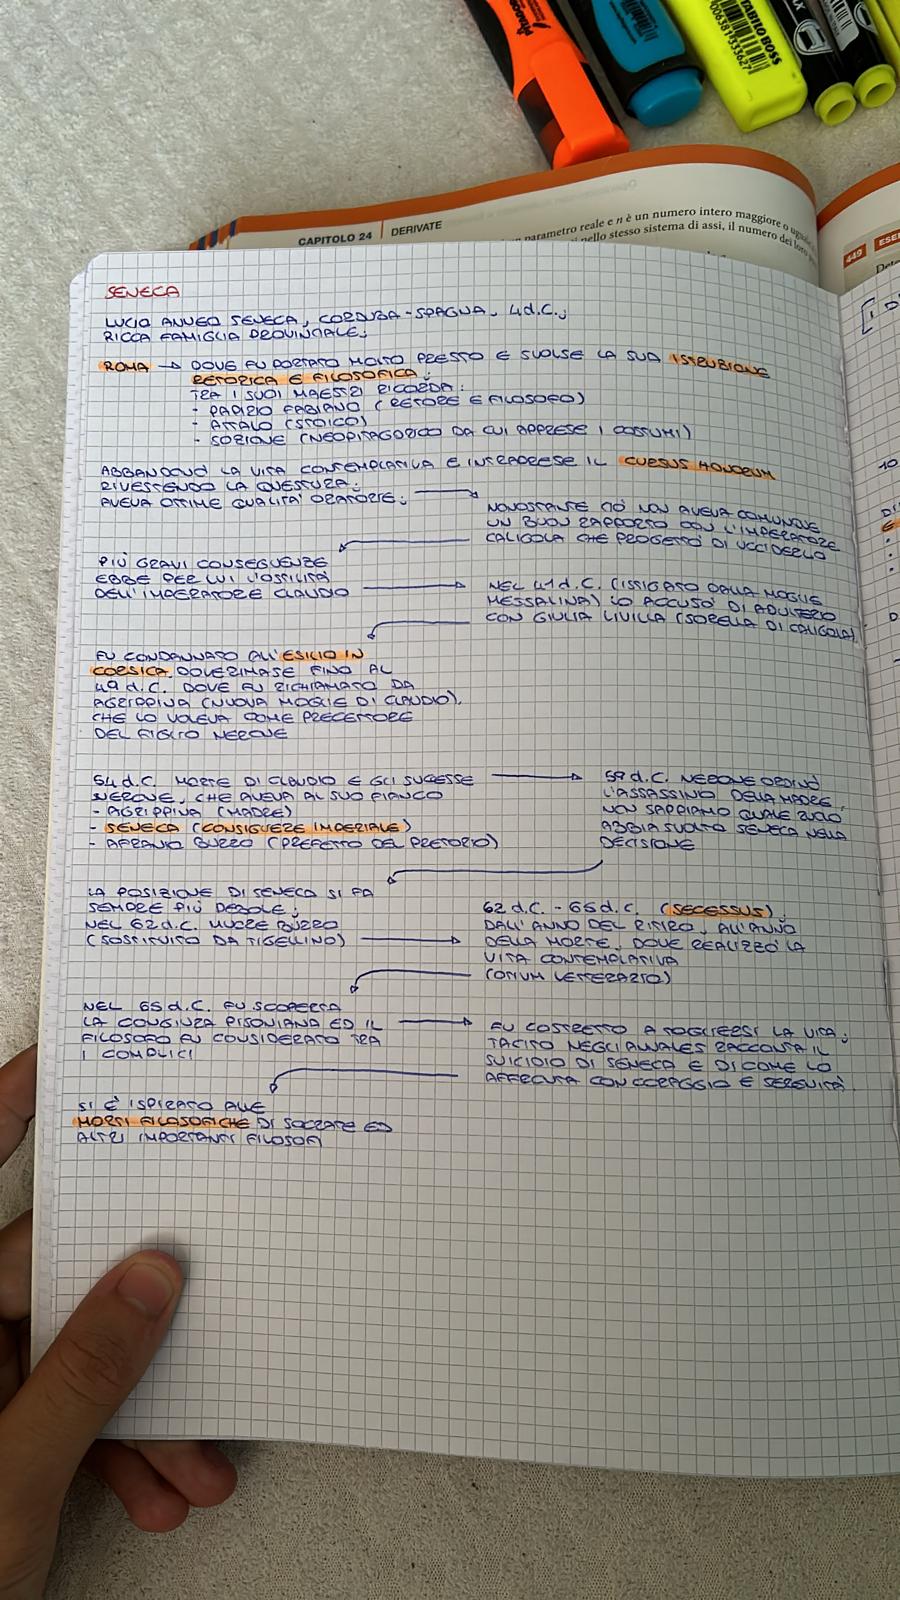 TABILO BOSS
CAPITOLO 24 | DERIVATE
parametro reale e n è un numero intero maggiore o
nello stesso sistema di assi, il numero dei loro
449 ESE
SENECA
LUCIO ANNEO SENECA, CORDUBA-SPAGNA, 4 d.C.;
RICCA FAMIGLIA PROVINCIALE;
ROMA → DOVE FU PORTATO MOLTO PRESTO E SVOLSE LA SUA ISTRUZIONE
RETORICA E FILOSOFICA;
TRA I SUOI MAESTRI RICORDA:
- PAPIRIO FABIANO (RETORE E FILOSOFO)
- ATTALO (STOICO)
- SOZIONE (NEOPITAGORICO DA CUI APPRESE I COSTUMI)
ABBANDONÒ LA VITA CONTEMPLATIVA E INTRAPRESE IL CURSUS HONORUM
RIVESTENDO LA QUESTURA;
AVEVA OTTIME QUALITA' ORATORIE; →
NONOSTANTE CIÒ NON AVEVA COMUNQUE
UN BUON RAPPORTO CON L'IMPERATORE
CALIGOLA CHE PROGETTÒ DI UCCIDERLO
PIÙ GRAVI CONSEGUENZE
EBBE PER LUI L'OSTILITÀ
DELL'IMPERATORE CLAUDIO →
NEL 41 d.C. (ISTIGATO DALLA MOGLIE
MESSALINA) LO ACCUSÒ DI ADULTERIO
CON GIULIA LIVILLA (SORELLA DI CALIGOLA).
FU CONDANNATO ALL'ESILIO IN
CORSICA, DOVE RIMASE FINO AL
49 d.C. DOVE FU RICHIAMATO DA
AGRIPPINA (NUOVA MOGLIE DI CLAUDIO),
CHE LO VOLEVA COME PRECETTORE
DEL FIGLIO NERONE
54 d.C. MORTE DI CLAUDIO E GLI SUCESSE
NERONE, CHE AVEVA AL SUO FIANCO
- AGRIPPINA (MADRE)
- SENECA (CONSIGLIERE IMPERIALE)
- AFRANIO BURRO (PREFETTO DEL PRETORIO)
→ 59 d.C. NERONE ORDINÒ
L'ASSASSINIO DELLA MADRE,
NON SAPPIAMO QUALE RUOLO
ABBIA SVOLTO SENECA NELLA
DECISIONE
LA POSIZIONE DI SENECA SI FA
SEMPRE PIÙ DEBOLE;
NEL 62 d.C. MUORE BURRO
(SOSTITUITO DA TIGELLINO) →
62 d.C. - 65 d.C. (SECESSUS),
DALL'ANNO DEL RITIRO, ALL'ANNO
DELLA MORTE, DOVE REALIZZÒ LA
VITA CONTEMPLATIVA
(OTIUM LETTERARIO)
NEL 65 d.C. FU SCOPERTA
LA CONGIURA PISONIANA ED IL
FILOSOFO FU CONSIDERATO TRA
I COMPLICI
→ FU COSTRETTO A TOGLIERSI LA VITA;
TACITO NEGLI ANNALES RACCONTA IL
SUICIDIO DI SENECA E DI COME LO
AFFRONTA CON CORAGGIO E SERENITÀ.
SI È ISPIRATO ALLE
MORTI FILOSOFICHE DI SOCRATE ED
ALTRI IMPORTANTI FILOSOFI